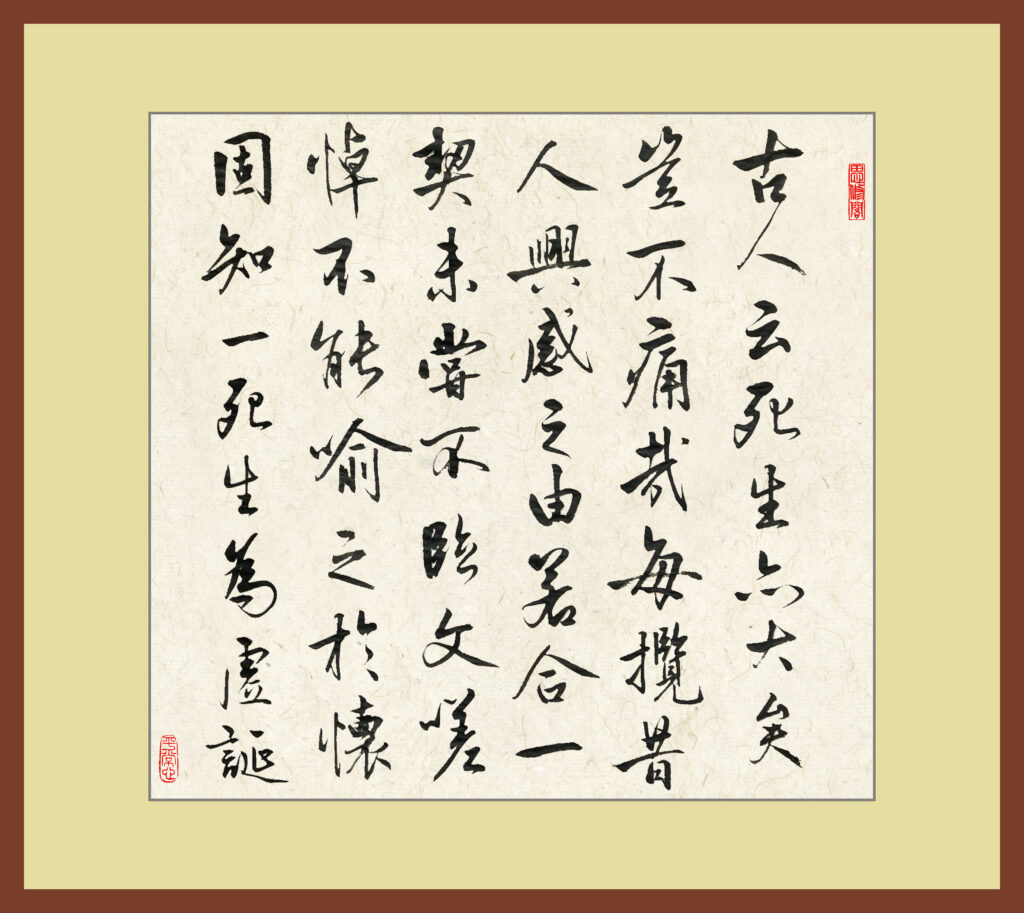 古人云死生亦大矣
豈不痛哉每攬昔
人興感之由若合一
契未嘗不臨文嗟
悼不能喻之於懷
固知一死生為虛誕
平常心